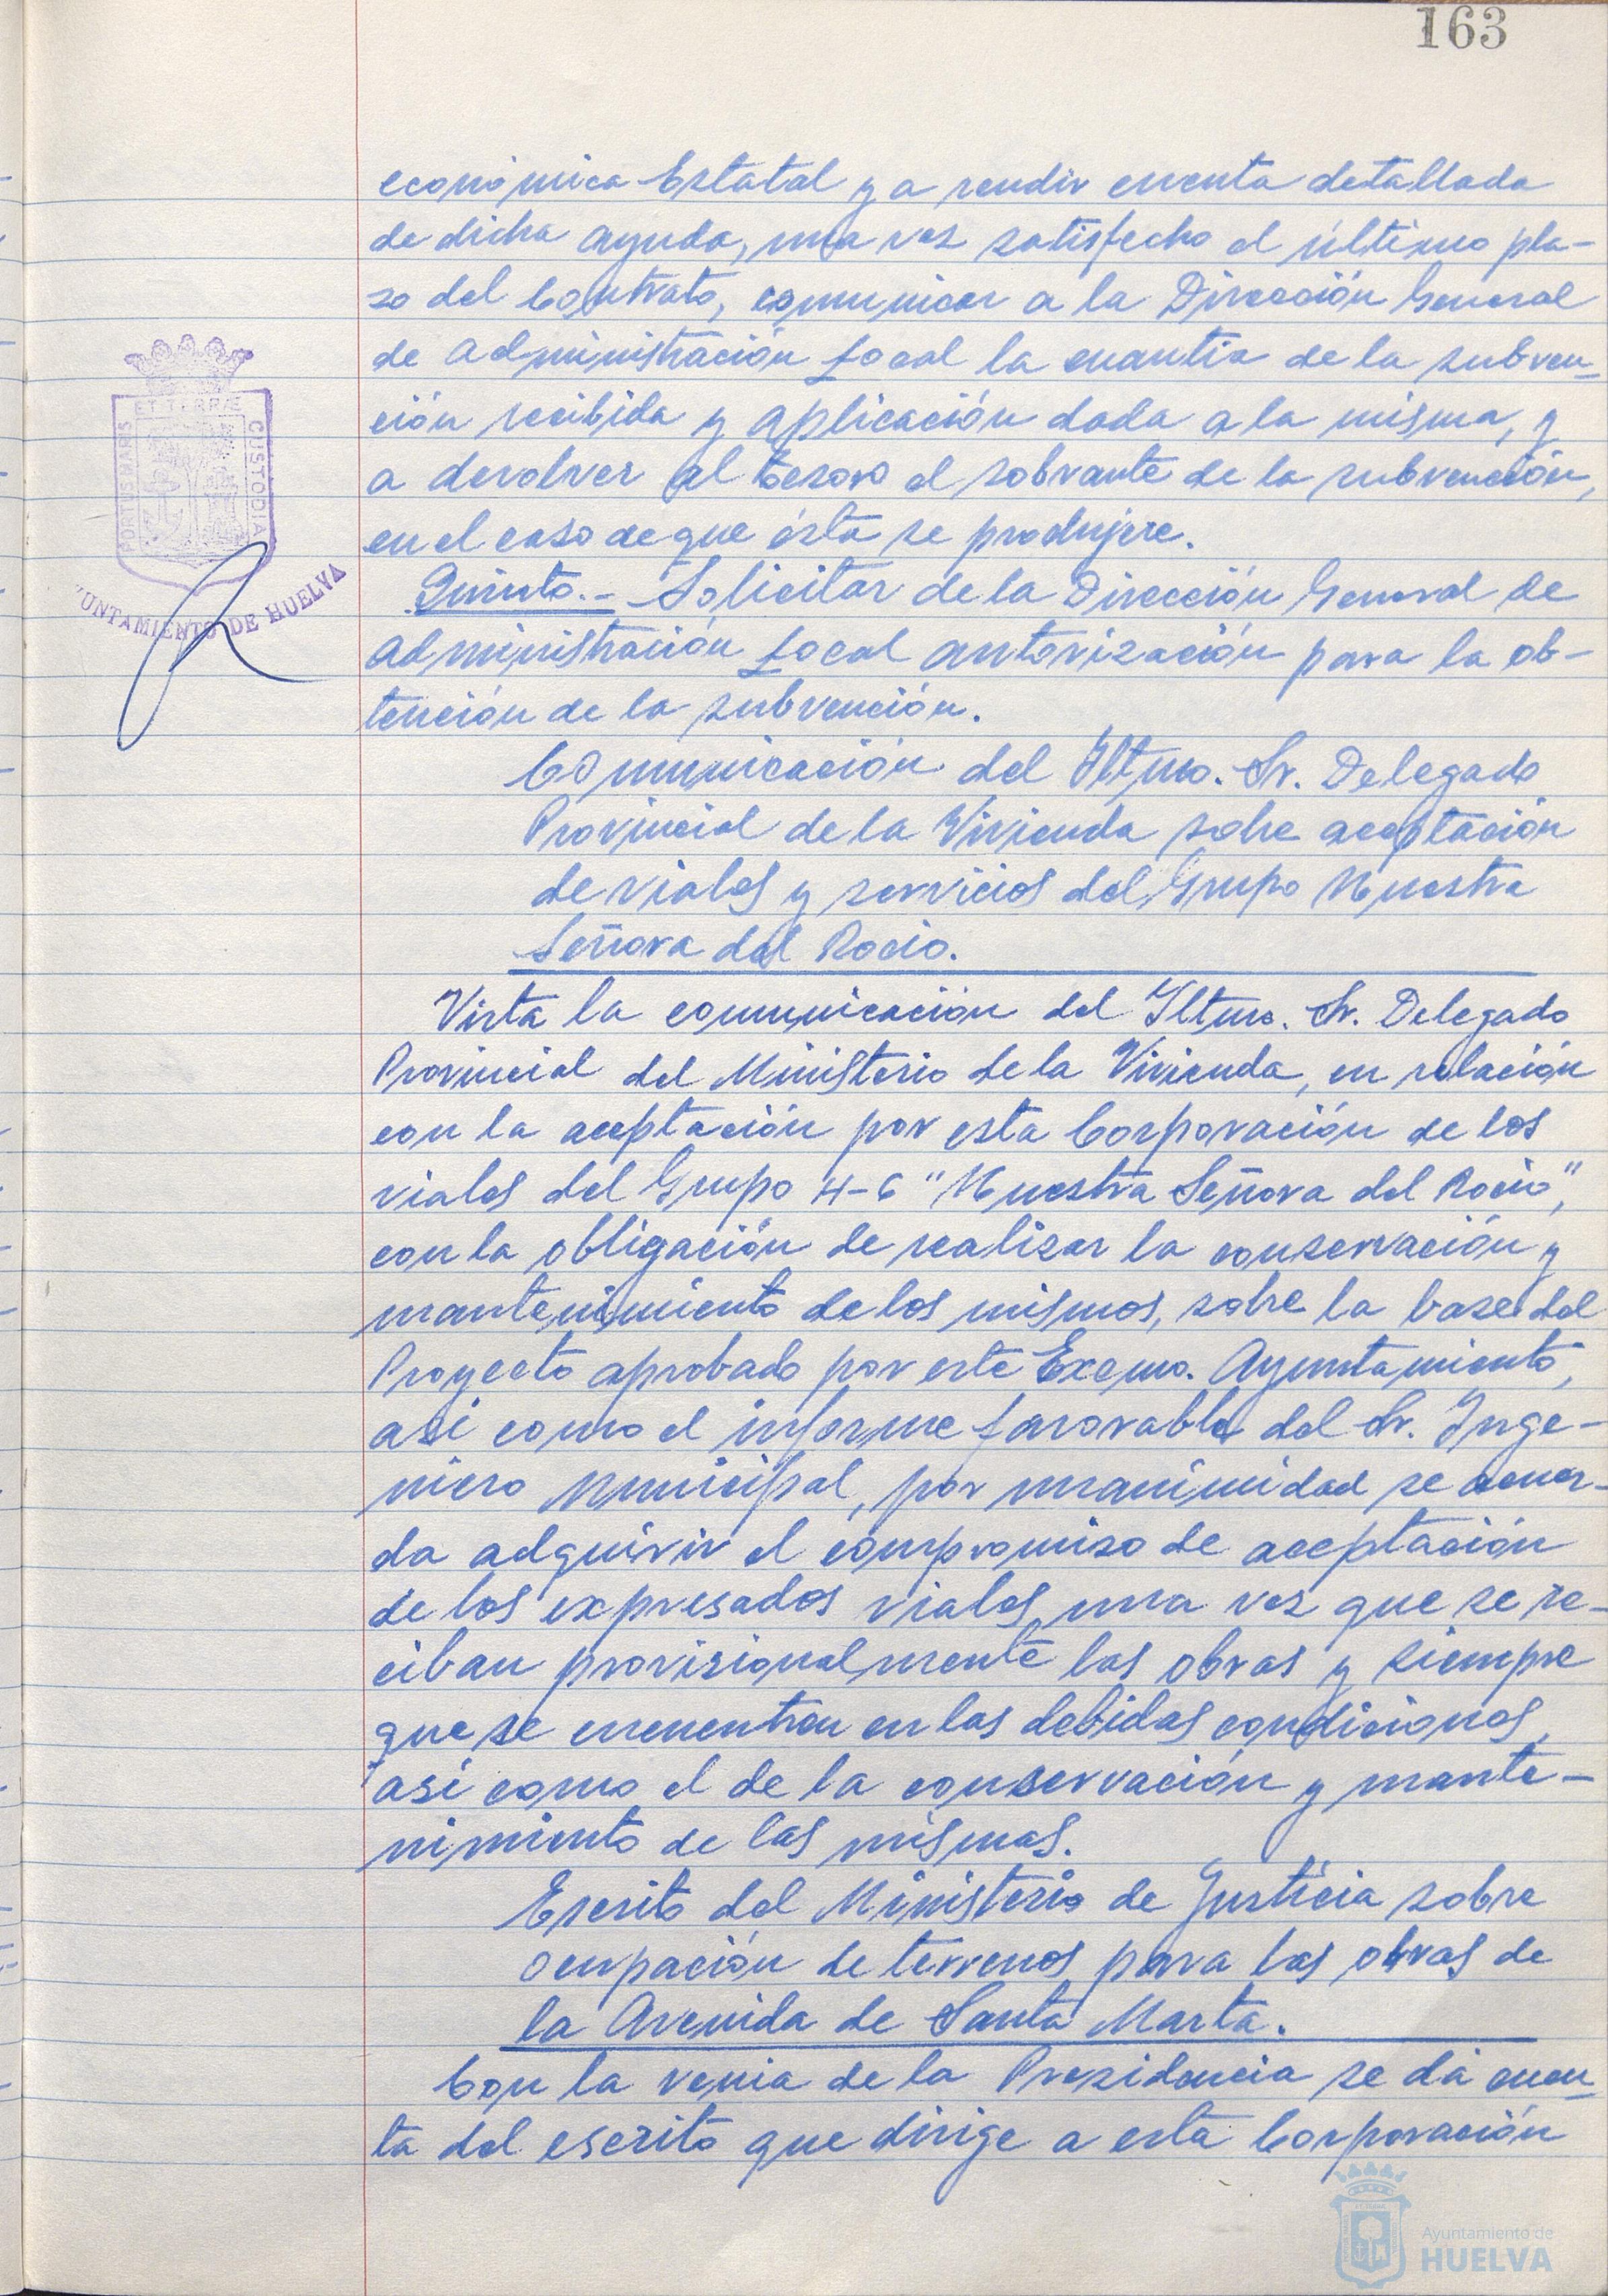 163
económica Estatal y a rendir cuenta detallada
de dicha ayuda, una vez satisfecho el último pla-
zo del Contrato, comunicar a la Dirección General
de Administración Local la cuantía de la subven-
ción recibida y aplicación dada a la misma, y
a devolver al tesoro el sobrante de la subvención,
en el caso de que ésta se produjere.
Quinto.- Solicitar de la Dirección General de
Administración Local autorización para la ob-
tención de la subvención.
Comunicación del Iltmo. Sr. Delegado
Provincial de la Vivienda sobre aceptación
de viales y servicios del Grupo Nuestra
Señora del Rocio.
Vista la comunicación del Iltmo. Sr. Delegado
Provincial del Ministerio de la Vivienda, en relación
con la aceptación por esta Corporación de los
viales del Grupo H-6 "Nuestra Señora del Rocio",
con la obligación de realizar la conservación y
mantenimiento de los mismos, sobre la base del
Proyecto aprobado por este Excmo. Ayuntamiento,
asi como el informe favorable del Sr. Inge-
niero Municipal, por unanimidad se acuer-
da adquirir el compromiso de aceptación
de los expresados viales, una vez que se re-
ciban provisionalmente las obras y siempre
que se encuentren en las debidas condiciones,
así como el de la conservación y mante-
nimiento de las mismas.
Escrito del Ministerio de Justicia sobre
ocupación de terrenos para las obras de
la Avenida de Santa Marta.
Con la venia de la Presidencia se dá cuen-
ta del escrito que dirige a esta Corporación
PORTUS MARIS
ET TERRÆ
CUSTODIA
UNTAMIENTO DE HUELVA
Ayuntamiento de
HUELVA